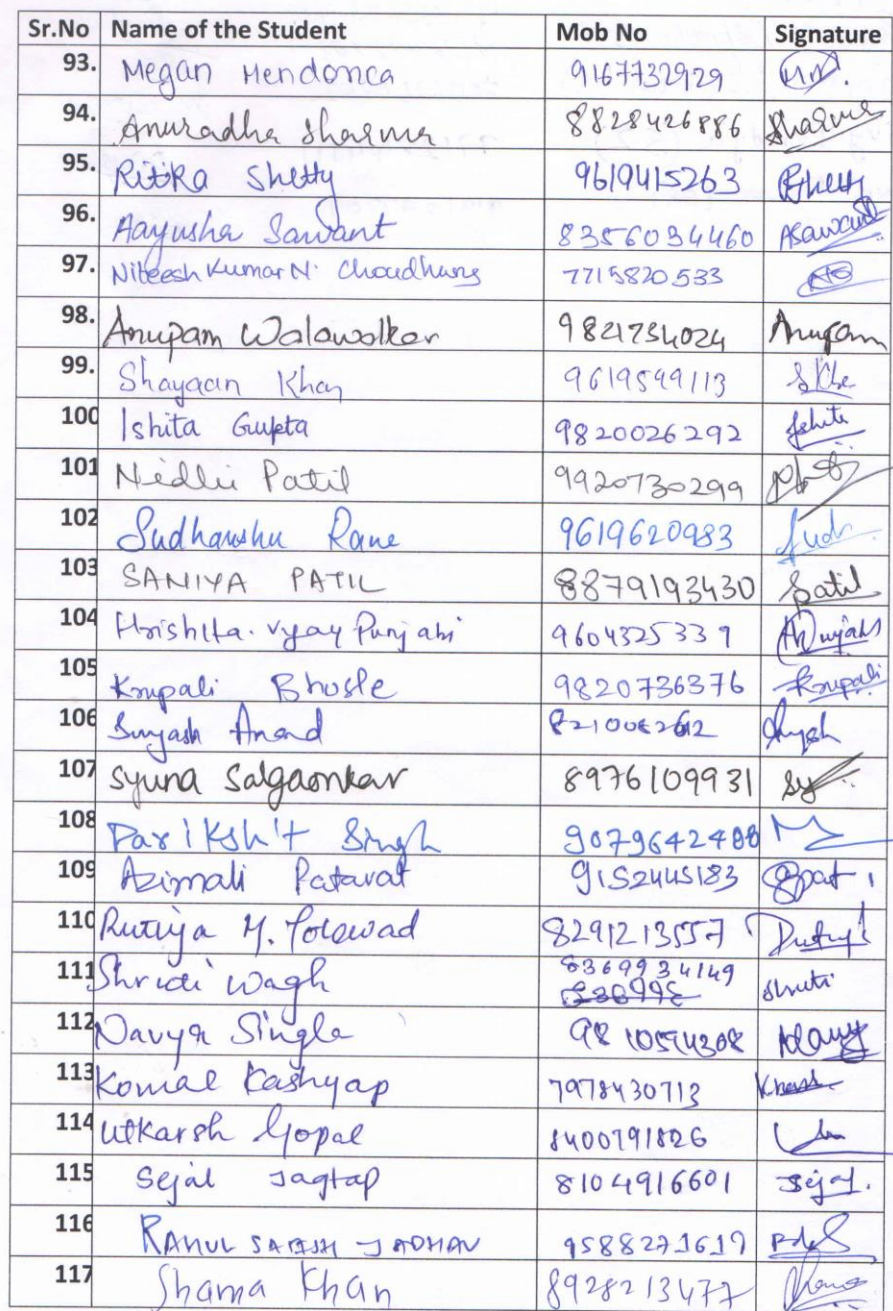 Sr.No Name of the Student Mob No Signature
93. Megan Mendonca 9167732929
94. Anuradha Sharma 8828426886 Sharma
95. Ritika Shetty 9619415263 Shetty
96. Aayusha Sawant 8356034460 Asawant
97. Niteesh Kumar N. Choudhary 7715820533
98. Anupam Walawalkar 9821734024 Anupam
99. Shayaan Khan 9619599113
100 Ishita Gupta 9820026292 Ishita
101 Nidhi Patil 9920730299
102 Sudhanshu Rane 9619620983 Sudh
103 SANIYA PATIL 8879193430 Spatil
104 Hrishita. Vijay Punjabi 9604325339
105 Krupali Bhosle 9820736376 Krupali
106 Suyash Anand
107 Syuna Salgaonkar 8976109931 Sy
108 Parikshit Singh
109 Azimali Patavat 9152445183
110 Rutuja M. 8291213557
111 Shruti Wagh 8369934149 Shruti
112 Navya Singla 9810594308
113 Komal Kashyap 7978430713
114 Utkarsh Gopal 8400791826
115 Sejal Jagtap 8104916601 Sejal.
116 RAHUL SATISH JADHAV 9588271619
117 Shama Khan 8928213477 Shama